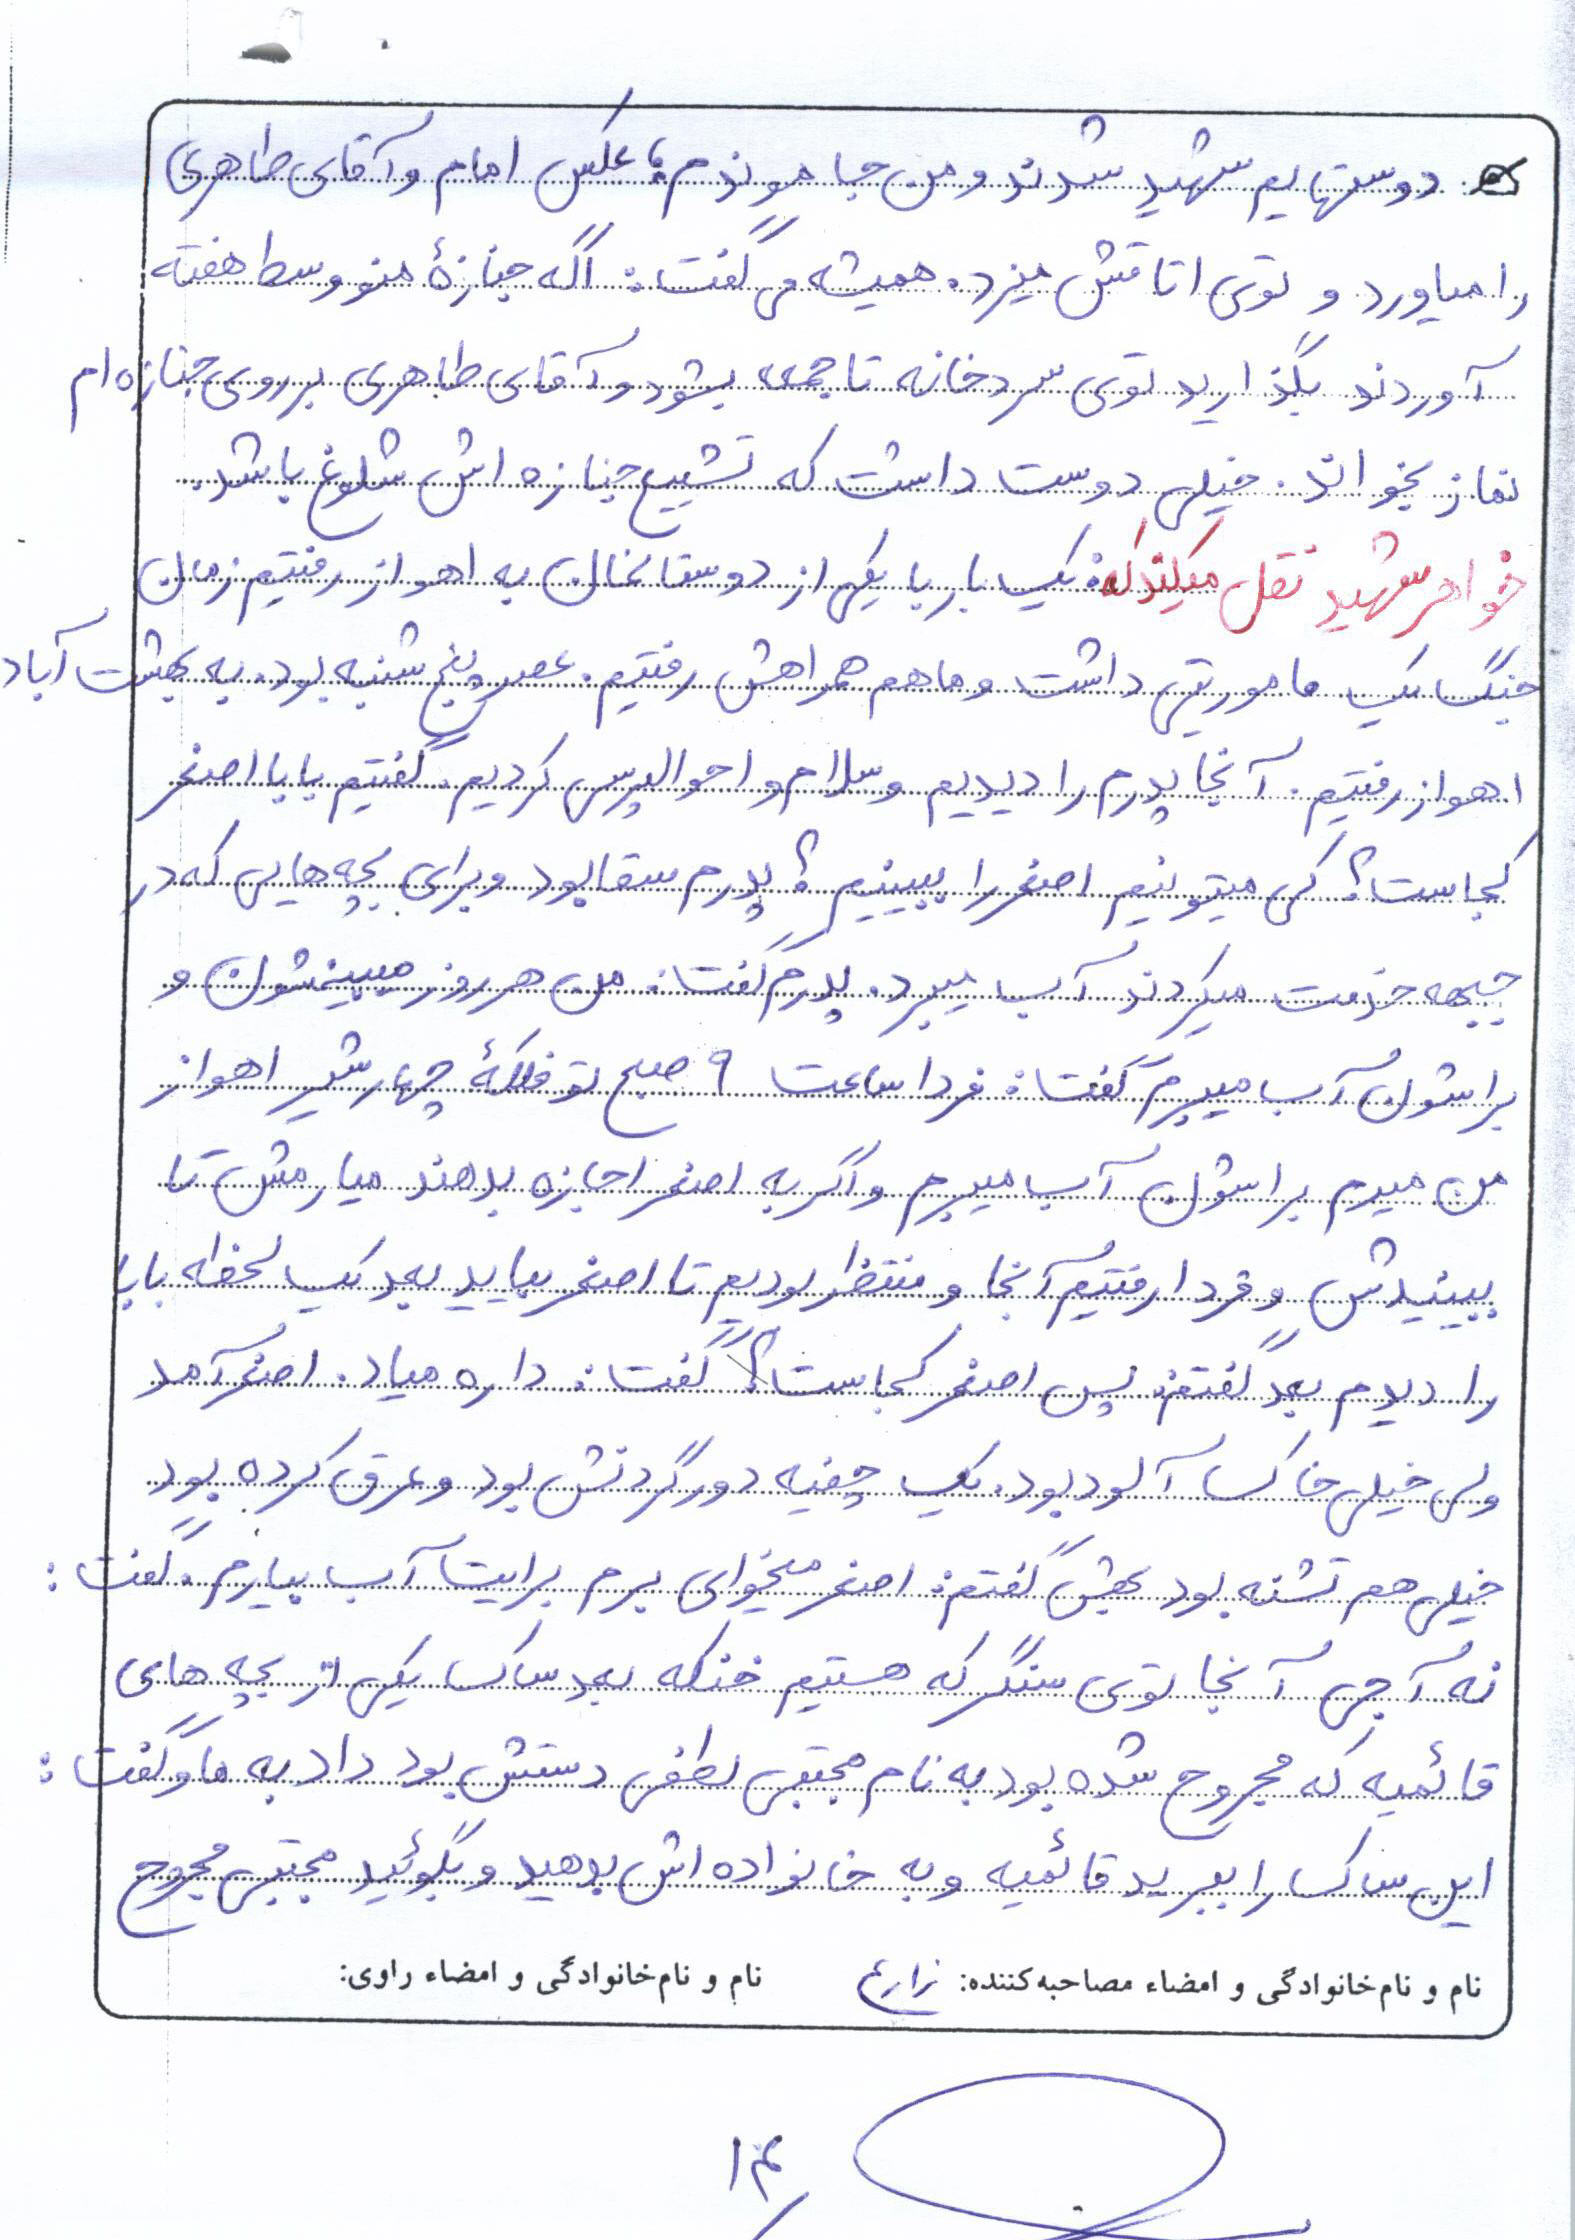 دوستهایم شهید شدند و من جا موندم؛ عکس امام و آقای طاهری
را میاورد و توی اتاقش میزد. همیشه می گفت: اگه جنازهٔ منو وسط هفته
آوردند بگذارید توی سردخانه تا جمعه بشود و آقای طاهری بر روی جنازه ام
نماز بخواند. خیلی دوست داشت که تشییع جنازه اش شلوغ باشد.
خواهر شهید نقل میکند که: یک بار با یکی از دوستانمان به اهواز رفتیم زمان
جنگ یک ماموریتی داشت و ما هم همراهش رفتیم. عصر پنج شنبه بود. به بهشت آباد
اهواز رفتیم. آنجا پدرم را دیدیم و سلام و احوالپرسی کردیم. گفتیم بابا اصغر
کجاست؟ کی میتونیم اصغر را ببینیم؟ پدرم سقا بود و برای بچه هایی که در
جبهه خدمت میکردند آب میبرد. پدرم گفت: من هر روز میبینمشون و
براشون آب میبرم گفت: فردا ساعت ۹ صبح تو فلکهٔ چهار شیر اهواز
من میرم براشون آب میبرم و اگر به اصغر اجازه بدهند میارمش تا
ببینیدش و فردا رفتیم آنجا و منتظر بودیم تا اصغر بیاید بعد یک لحظه بابا
را دیدم بعد گفتم: پس اصغر کجاست؟ گفت: داره میاد. اصغر آمد
ولی خیلی خاک آلود بود. یک چفیه دور گردنش بود و عرق کرده بود
خیلی هم تشنه بود بهش گفتم: اصغر میخوای برم برایت آب بیارم. گفت:
نه آجی آنجا توی سنگر که هستیم خنکه بعد ساک یکی از بچه های
قائمیه که مجروح شده بود به نام مجتبی لطفی دستش بود داد به ما و گفت:
این ساک را ببرید قائمیه و به خانواده اش بدهید و بگوئید مجتبی مجروح
نام و نام خانوادگی و امضاء مصاحبه کننده: زارع نام و نام خانوادگی و امضاء راوی: